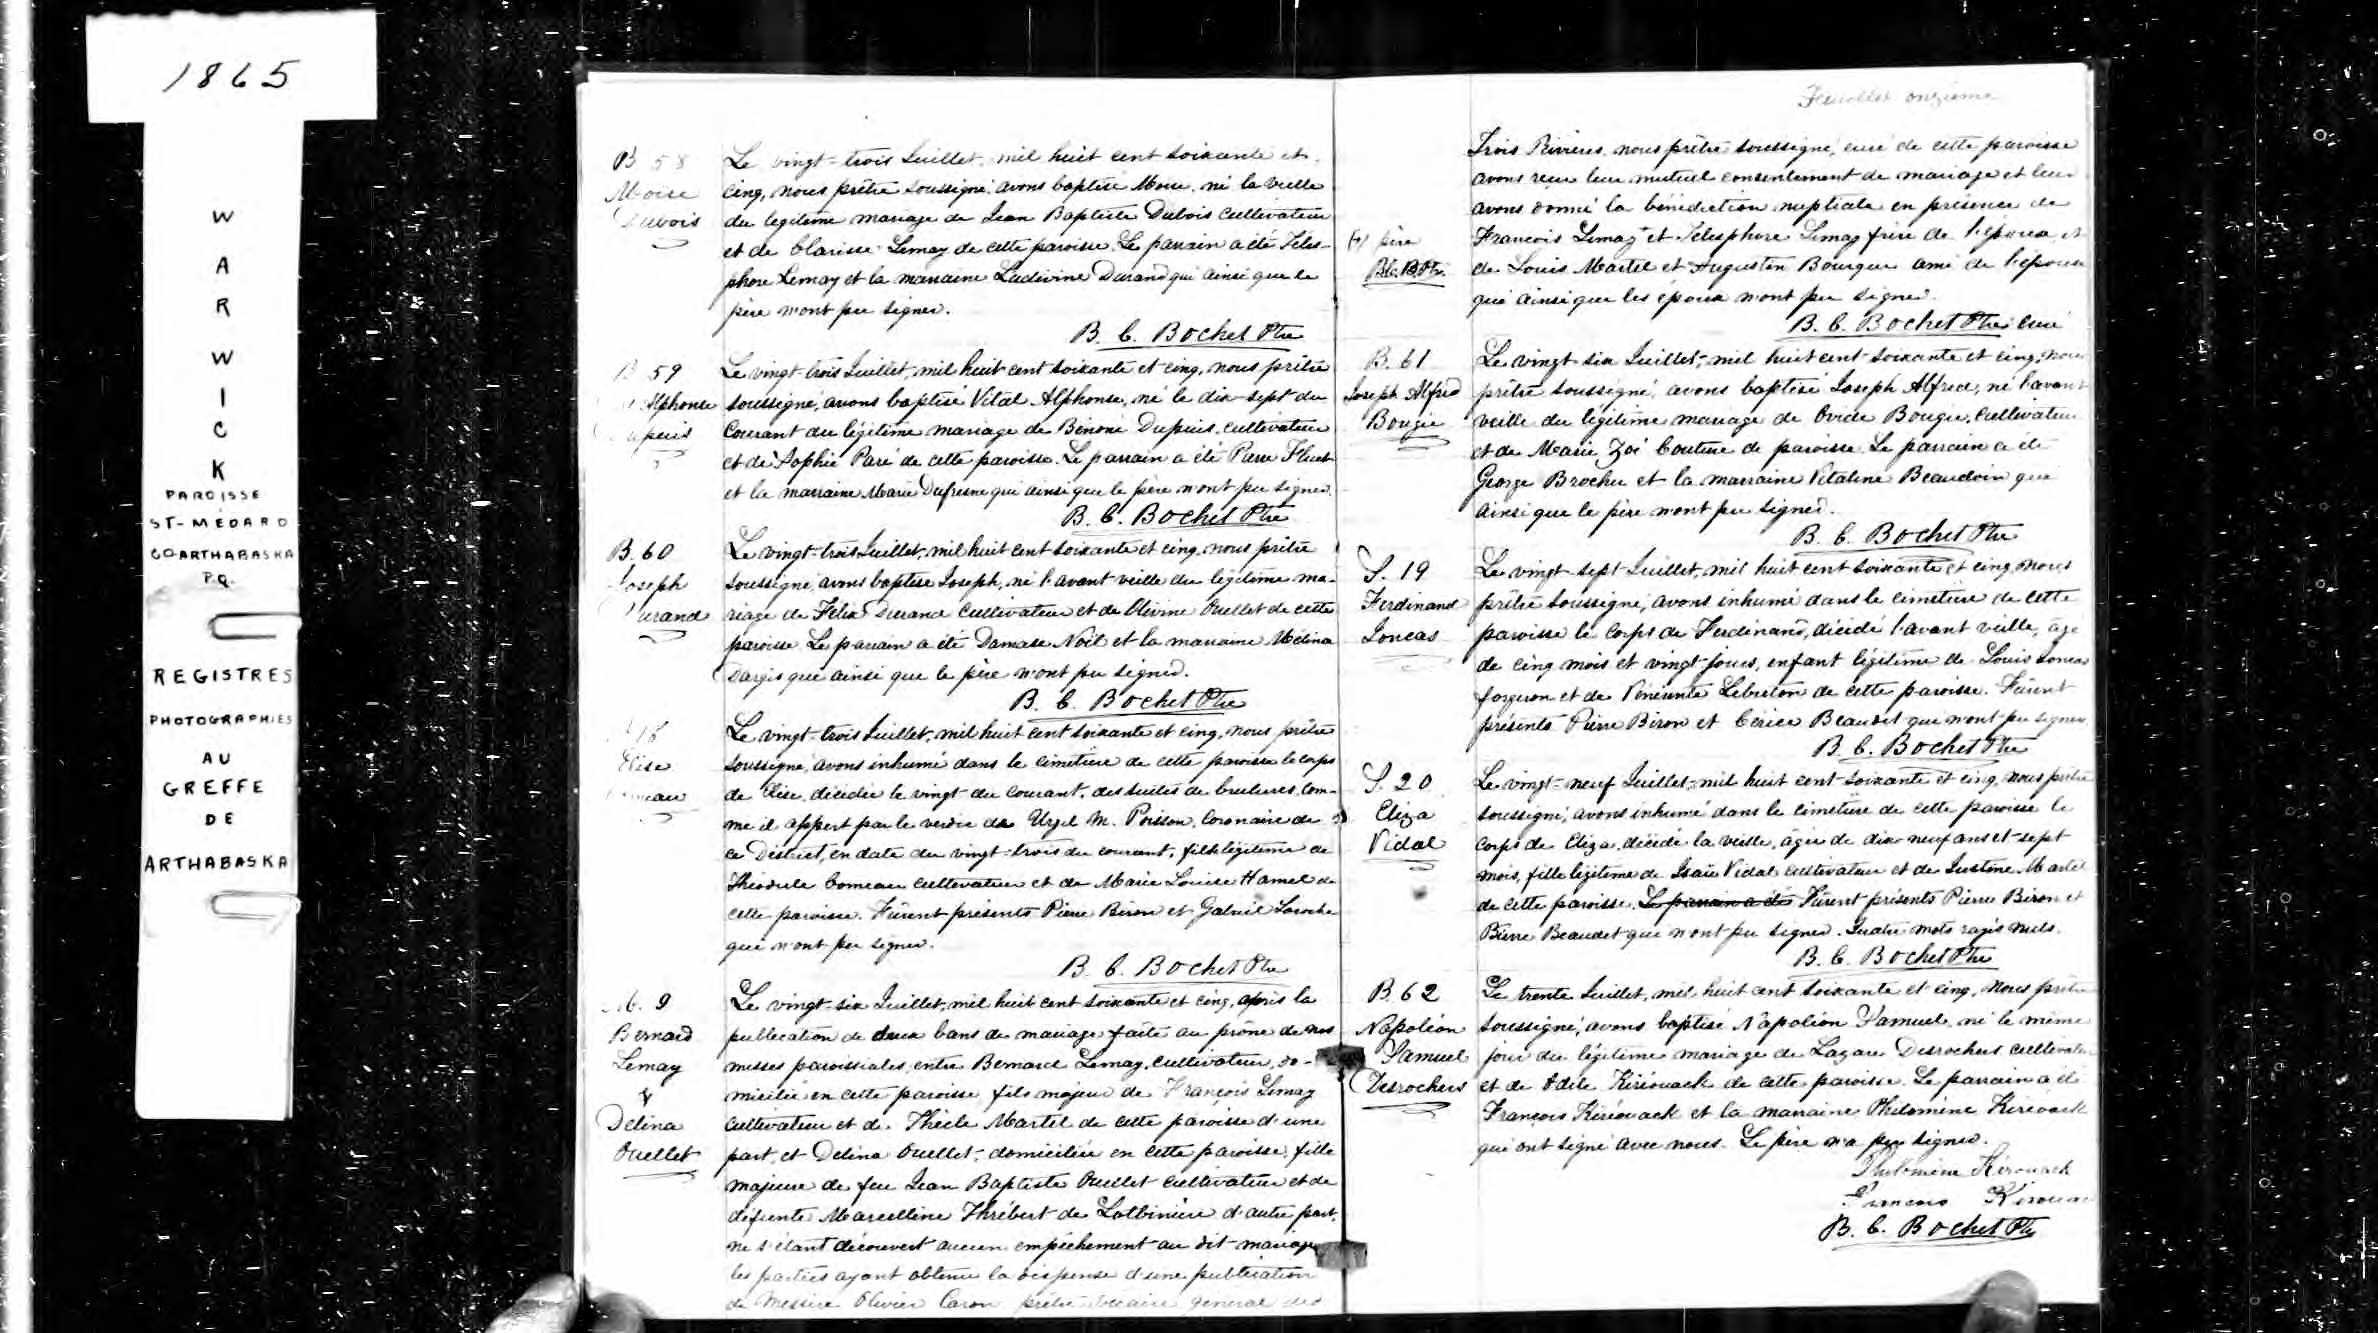 1865
W
A
R
W
I
C
K
PAROISSE
ST-MÉDARD
CO ARTHABASKA
P.Q.
REGISTRES
PHOTOGRAPHIES
AU
GREFFE
DE
ARTHABASKA
B 58
Moise
Dubois
Le vingt-trois Juillet, mil huit cent soixante et
cinq, nous prêtre soussigné avons baptisé Moise, né la veille
du légitime mariage de Jean Baptiste Dubois cultivateur
et de Clarisse Lemay de cette paroisse. Le parrain a été Téles-
phore Lemay et la marraine Ludivine Durand qui ainsi que le
père n'ont pu signer.
B. C. Bochet Ptre
B 59
Alphonse
Dupuis
Le vingt-trois Juillet, mil huit cent soixante et cinq, nous prêtre
soussigné, avons baptisé Vital Alphonse, né le dix-sept du
courant du légitime mariage de Bénoni Dupuis, cultivateur
et de Sophie Paré de cette paroisse. Le parrain a été Pierre
et la marraine Marie Dufresne qui ainsi que le père n'ont pu signer.
B. C. Bochet Ptre
B. 60
Joseph
Durand
Le vingt-trois Juillet, mil huit cent soixante et cinq, nous prêtre
soussigné avons baptisé Joseph, né l'avant veille du légitime ma-
riage de Felix Durand cultivateur et de Olivine Ouellet de cette
paroisse. Le parrain a été Damase Noël et la marraine Médina
Dargis qui ainsi que le père n'ont pu signer.
B. C. Bochet Ptre
18
Elise
Comeau
Le vingt-trois Juillet, mil huit cent soixante et cinq, nous prêtre
soussigné, avons inhumé dans le cimetière de cette paroisse le corps
de Elise, décédée le vingt du courant, des suites de brulures, com-
me il appert par le verdic de Urgel M. Poisson, Coronaire de
ce District, en date du vingt-trois du courant, fille légitime de
Théodule Comeau cultivateur et de Marie Louise Hamel de
cette paroisse. Fûrent présents Pierre Biron et Gabriel Laroche
qui n'ont pu signer.
B. C. Bochet Ptre
M. 9
Bernard
Lemay
&
Delina
Ouellet
Le vingt-six Juillet, mil huit cent soixante et cinq, après la
publication de deux bans de mariage faite au prône de nos
messes paroissiales, entre Bernard Lemay, cultivateur, do-
micilié en cette paroisse, fils majeur de François Lemay
cultivateur et de Thècle Martel de cette paroisse d'une
part, et Delina Ouellet, domiciliée en cette paroisse, fille
majeure de feu Jean Baptiste Ouellet cultivateur et de
défunte Marcelline Thrébert de Lotbinière d'autre part,
ne s'étant découvert aucun empêchement au dit mariage
les parties ayant obtenu la dispense d'une publication
de Messire Olivier Caron prêtre vicaire général des
Feuillet onzième
Trois Rivières, nous prêtre soussigné, curé de cette paroisse
avons reçu leur mutuel consentement de mariage et leur
avons donné la bénédiction nuptiale en présence de
François Lemay et Télesphore Lemay frère de l'époux et
de Louis Martel et Augustin Bourque ami de l'épouse
qui ainsi que les époux n'ont pu signer.
B. C. Bochet Ptre Curé
(+) père
B.C.B. Ptr.
B. 61
Joseph Alfred
Bougie
Le vingt-six Juillet, mil huit cent soixante et cinq, nous
prêtre soussigné, avons baptisé Joseph Alfred, né l'avant
veille du légitime mariage de Ovide Bougie, cultivateur
et de Marie Zoé Couture de paroisse. Le parrain a été
George Brochu et la marraine Vitaline Beaudoin qui
ainsi que le père n'ont pu signer.
B. C. Bochet Ptre
S. 19
Ferdinand
Joncas
Le vingt-sept Juillet, mil huit cent soixante et cinq, nous
prêtre soussigné, avons inhumé dans le cimetière de cette
paroisse le corps de Ferdinand, décédé l'avant veille, âgé
de cinq mois et vingt jours, enfant légitime de Louis Joncas
forgeron et de Lebreton de cette paroisse. Fûrent
présents Pierre Biron et Beaudet qui n'ont pu signer.
B. C. Bochet Ptre
S. 20
Eliza
Vidal
Le vingt-neuf Juillet, mil huit cent soixante et cinq, nous prêtre
soussigné, avons inhumé dans le cimetière de cette paroisse le
corps de Eliza, décédé la veille, âgée de dix-neuf ans et sept
mois, fille légitime de Isaïe Vidal cultivateur et de Justine Martel
de cette paroisse. Le parrain a été Fûrent présents Pierre Biron et
Pierre Beaudet qui n'ont pu signer. Quatre mots rayés nuls.
B. C. Bochet Ptre
B. 62
Napoléon
Samuel
Desrochers
Le trente Juillet, mil huit cent soixante et cinq, nous prêtre
soussigné, avons baptisé Napoléon Samuel, né le même
jour du légitime mariage de Lazare Desrochers cultivateur
et de Odile Kirérouack de cette paroisse. Le parrain a été
François Kirérouack et la marraine Philomène Kirérouack
qui ont signé avec nous. Le père n'a pu signer.
Philomène Kérouack
François Kirouac
B. C. Bochet Ptre